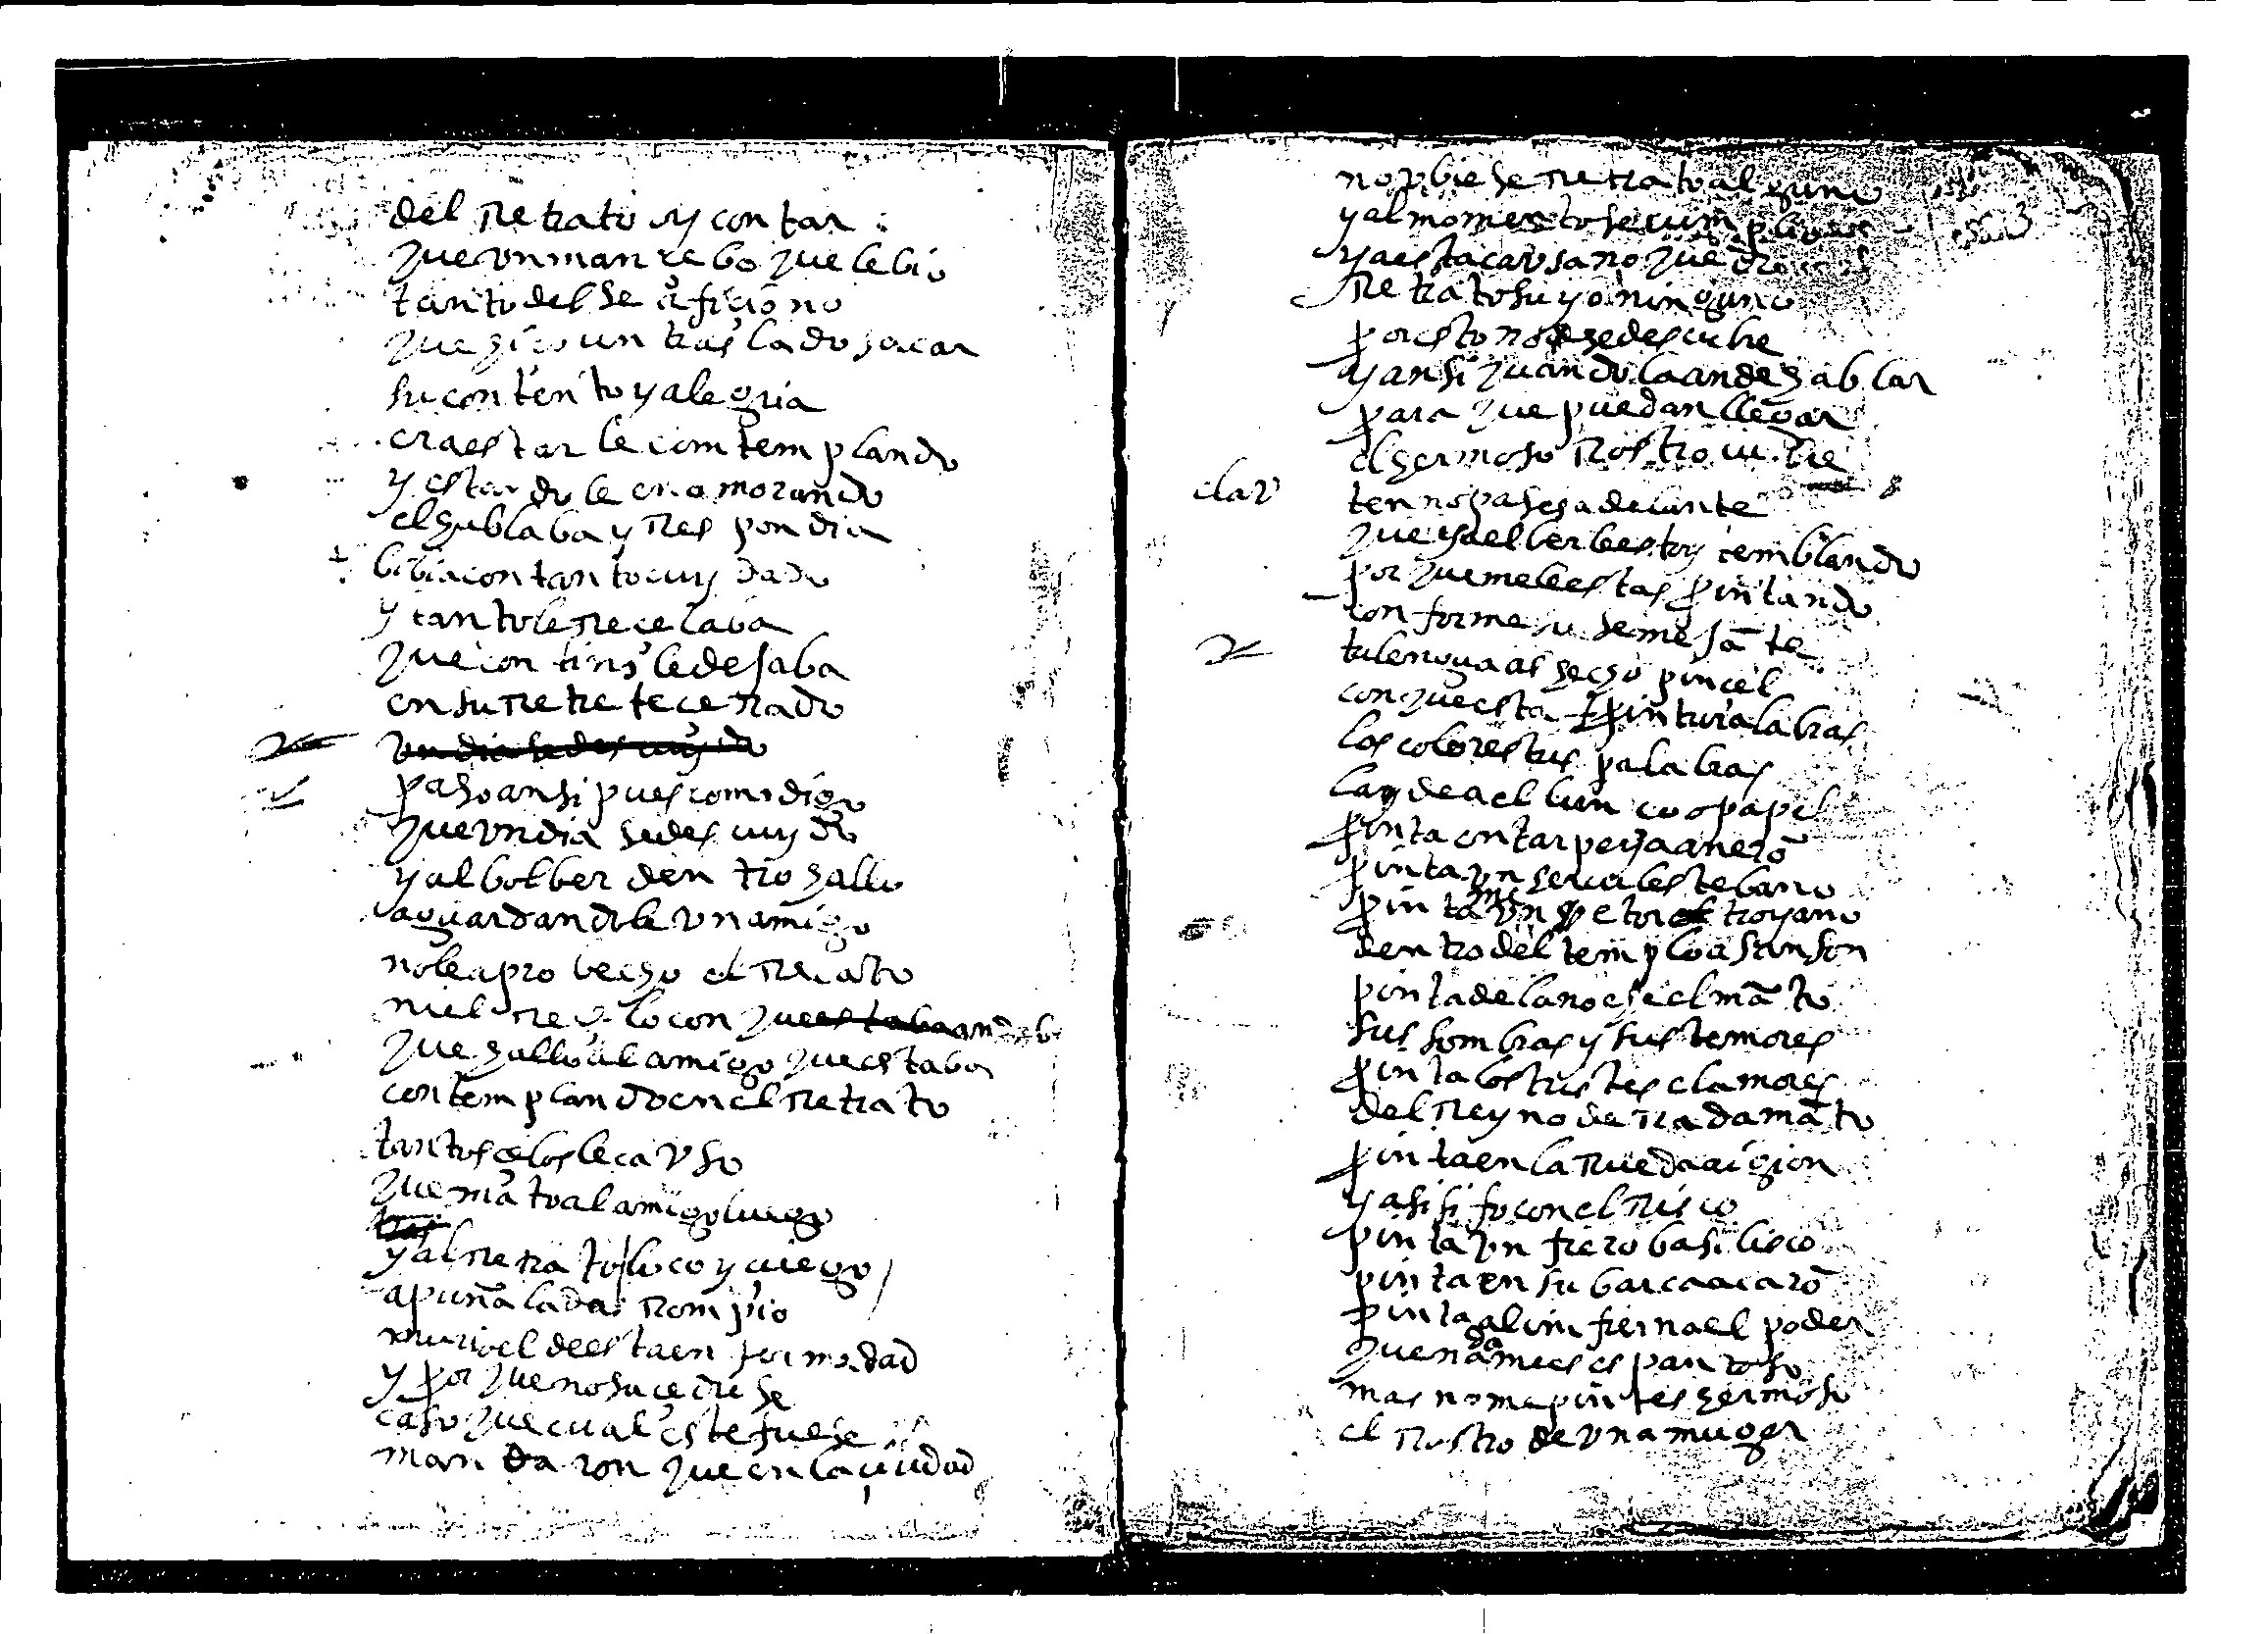 del rretrato oy contar
que vn manzebo que le bio
tanto del se aficiono
que hiço un traslado sacar
su contento y alegria
era estar le comtemplando
y estandole enamorando
el hablaba y rrespondia
bibia con tanto cuydado
y tanto le rrecelaba
que contino le dejaba
en su rretrete cerrado
vn dia se descuydo
paso ansi pues como digo
que vn dia se descuydo
y al bolber dentro hallo
aguardandole vn amigo
no le aprobecho el rrecato
ni el rreçelo con que estaba andaba
que hallo al amigo que estaba
contemplando en el rretrato
tantos celos le causo
que mato al amigo luego
y al rretrato loco y ciego
a puñaladas rrompio
murio el de esta enfermedad
y porque no sucediese
caso que cual este fuese
mandaron que en la ciudad
no vbiese rretrato alguno
y al momento se cumplio
y a esta cavsa no quedo
rretrato suyo ninguno
por esto no se descubre
y ansi quando la an de hablar
para que puedan llegar
el hermoso rrostro cubre
clav
ten no pases adelante
que ya el berle estoy temblando
porque me le estas pintando
conforme su semejāte
tu lengua as hecho pincel
con que esta pintura labras
los colores tus palabras
la ydea el lienço o papel
pinta en tarpeya a nerō
pinta vn seuero lestebano
pintame vn hetor troyano
dentro del templo a sanson
pinta de la noche el māto
sus sombras y sus temores
pinta los tristes clamores
del rreyno de rradamāto
pinta en la rrueda a igion
y a sisifo con el rrisco
pinta vn fiero basilisco
pinta en su barca a carō
pinta al imfierno el poder
que nada me es espantoso
mas no me pintes hermoso
el rrostro de vna muger